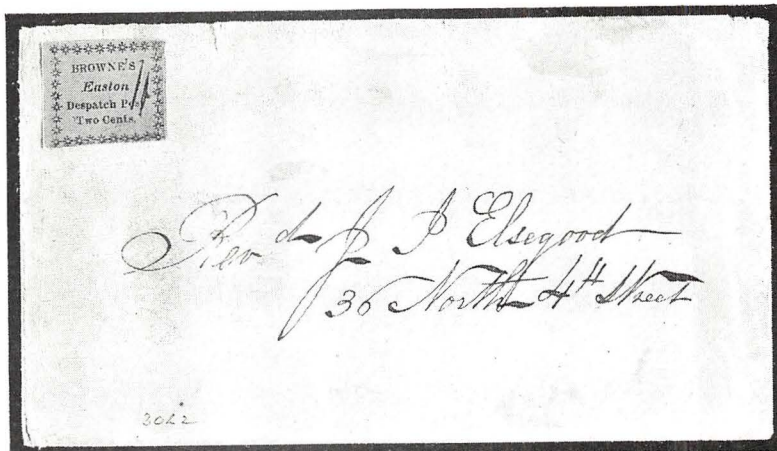 BROWNE'S
Easton
Despatch Pos
Two Cents.
Revd J P Elsegood
36 North 4th Street
3022